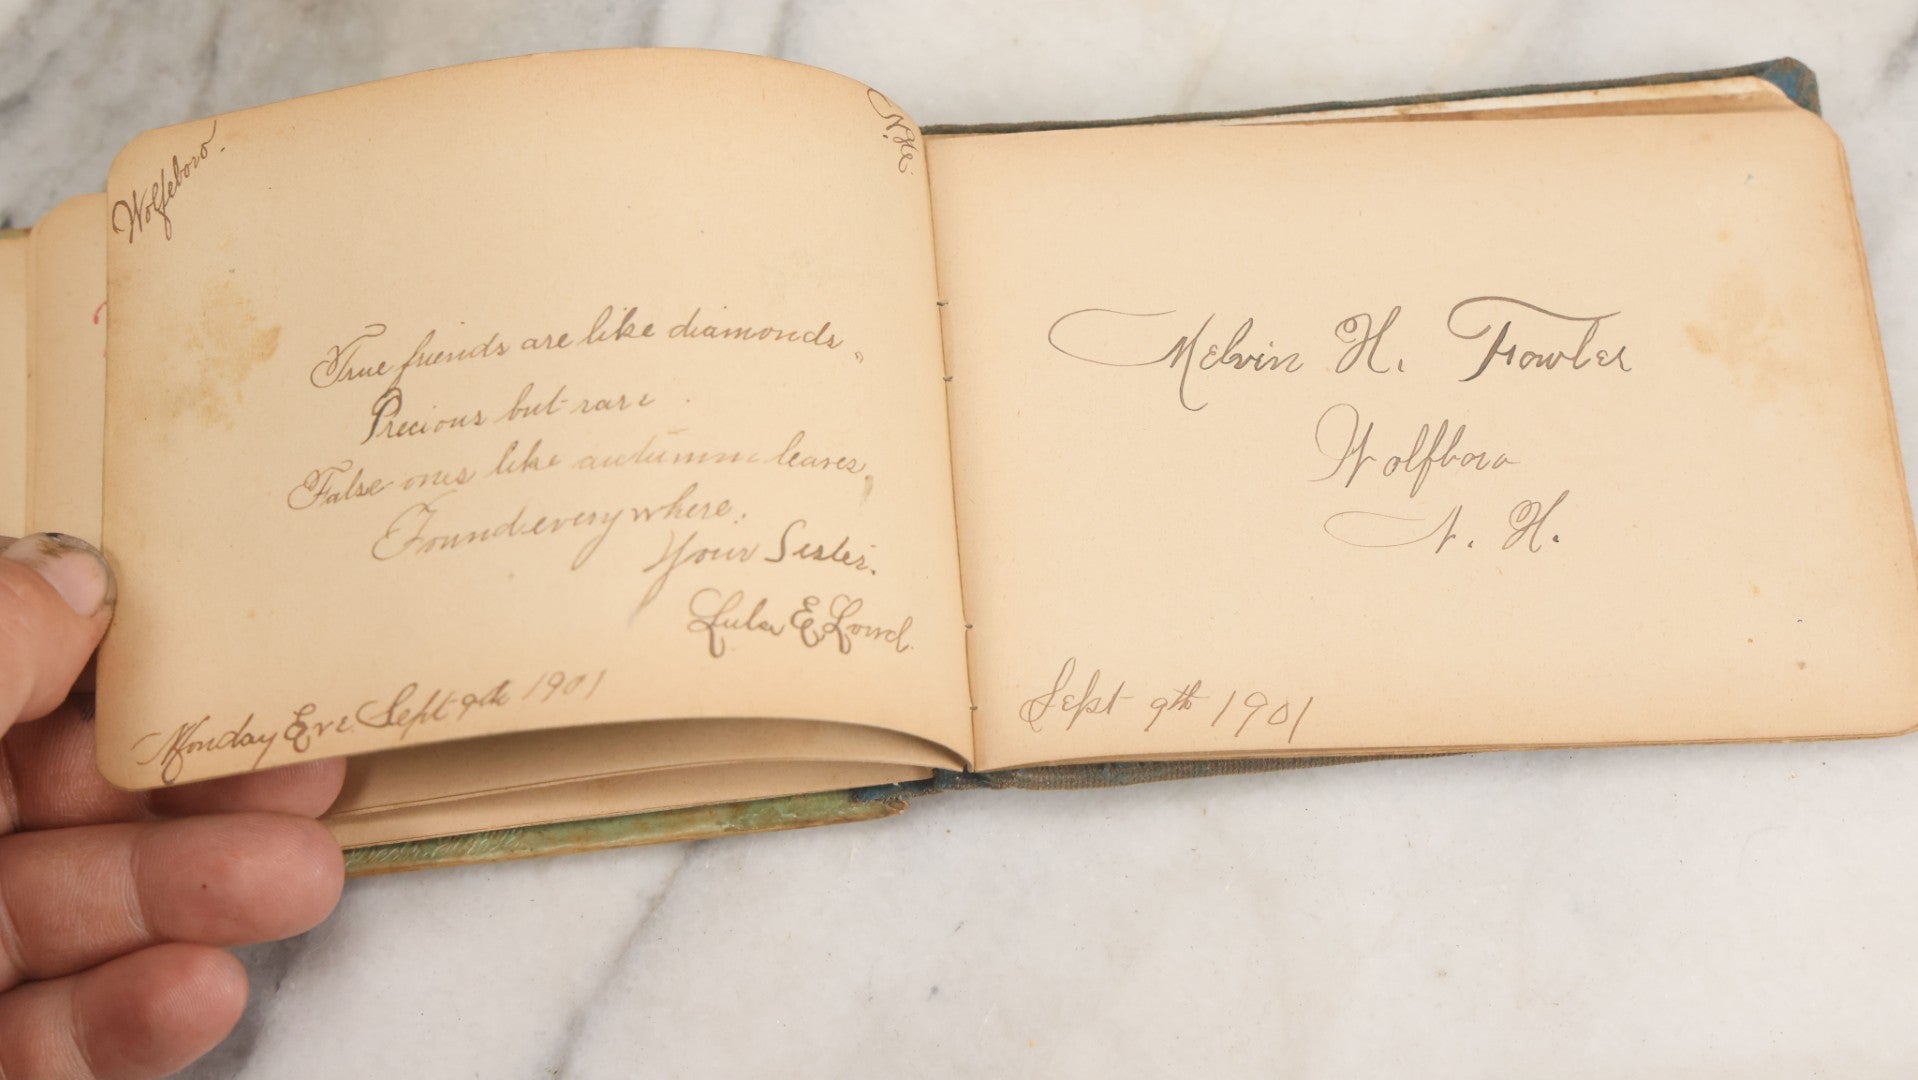 Wolfeboro.
N.H.
True friends are like diamonds,
Precious but rare.
False ones like autumn leaves,
Found everywhere.
Your Sister.
Lula E. Lord.
Monday Eve Sept 9th 1901
Melvin H. Fowler
Wolfboro
N. H.
Sept 9th 1901